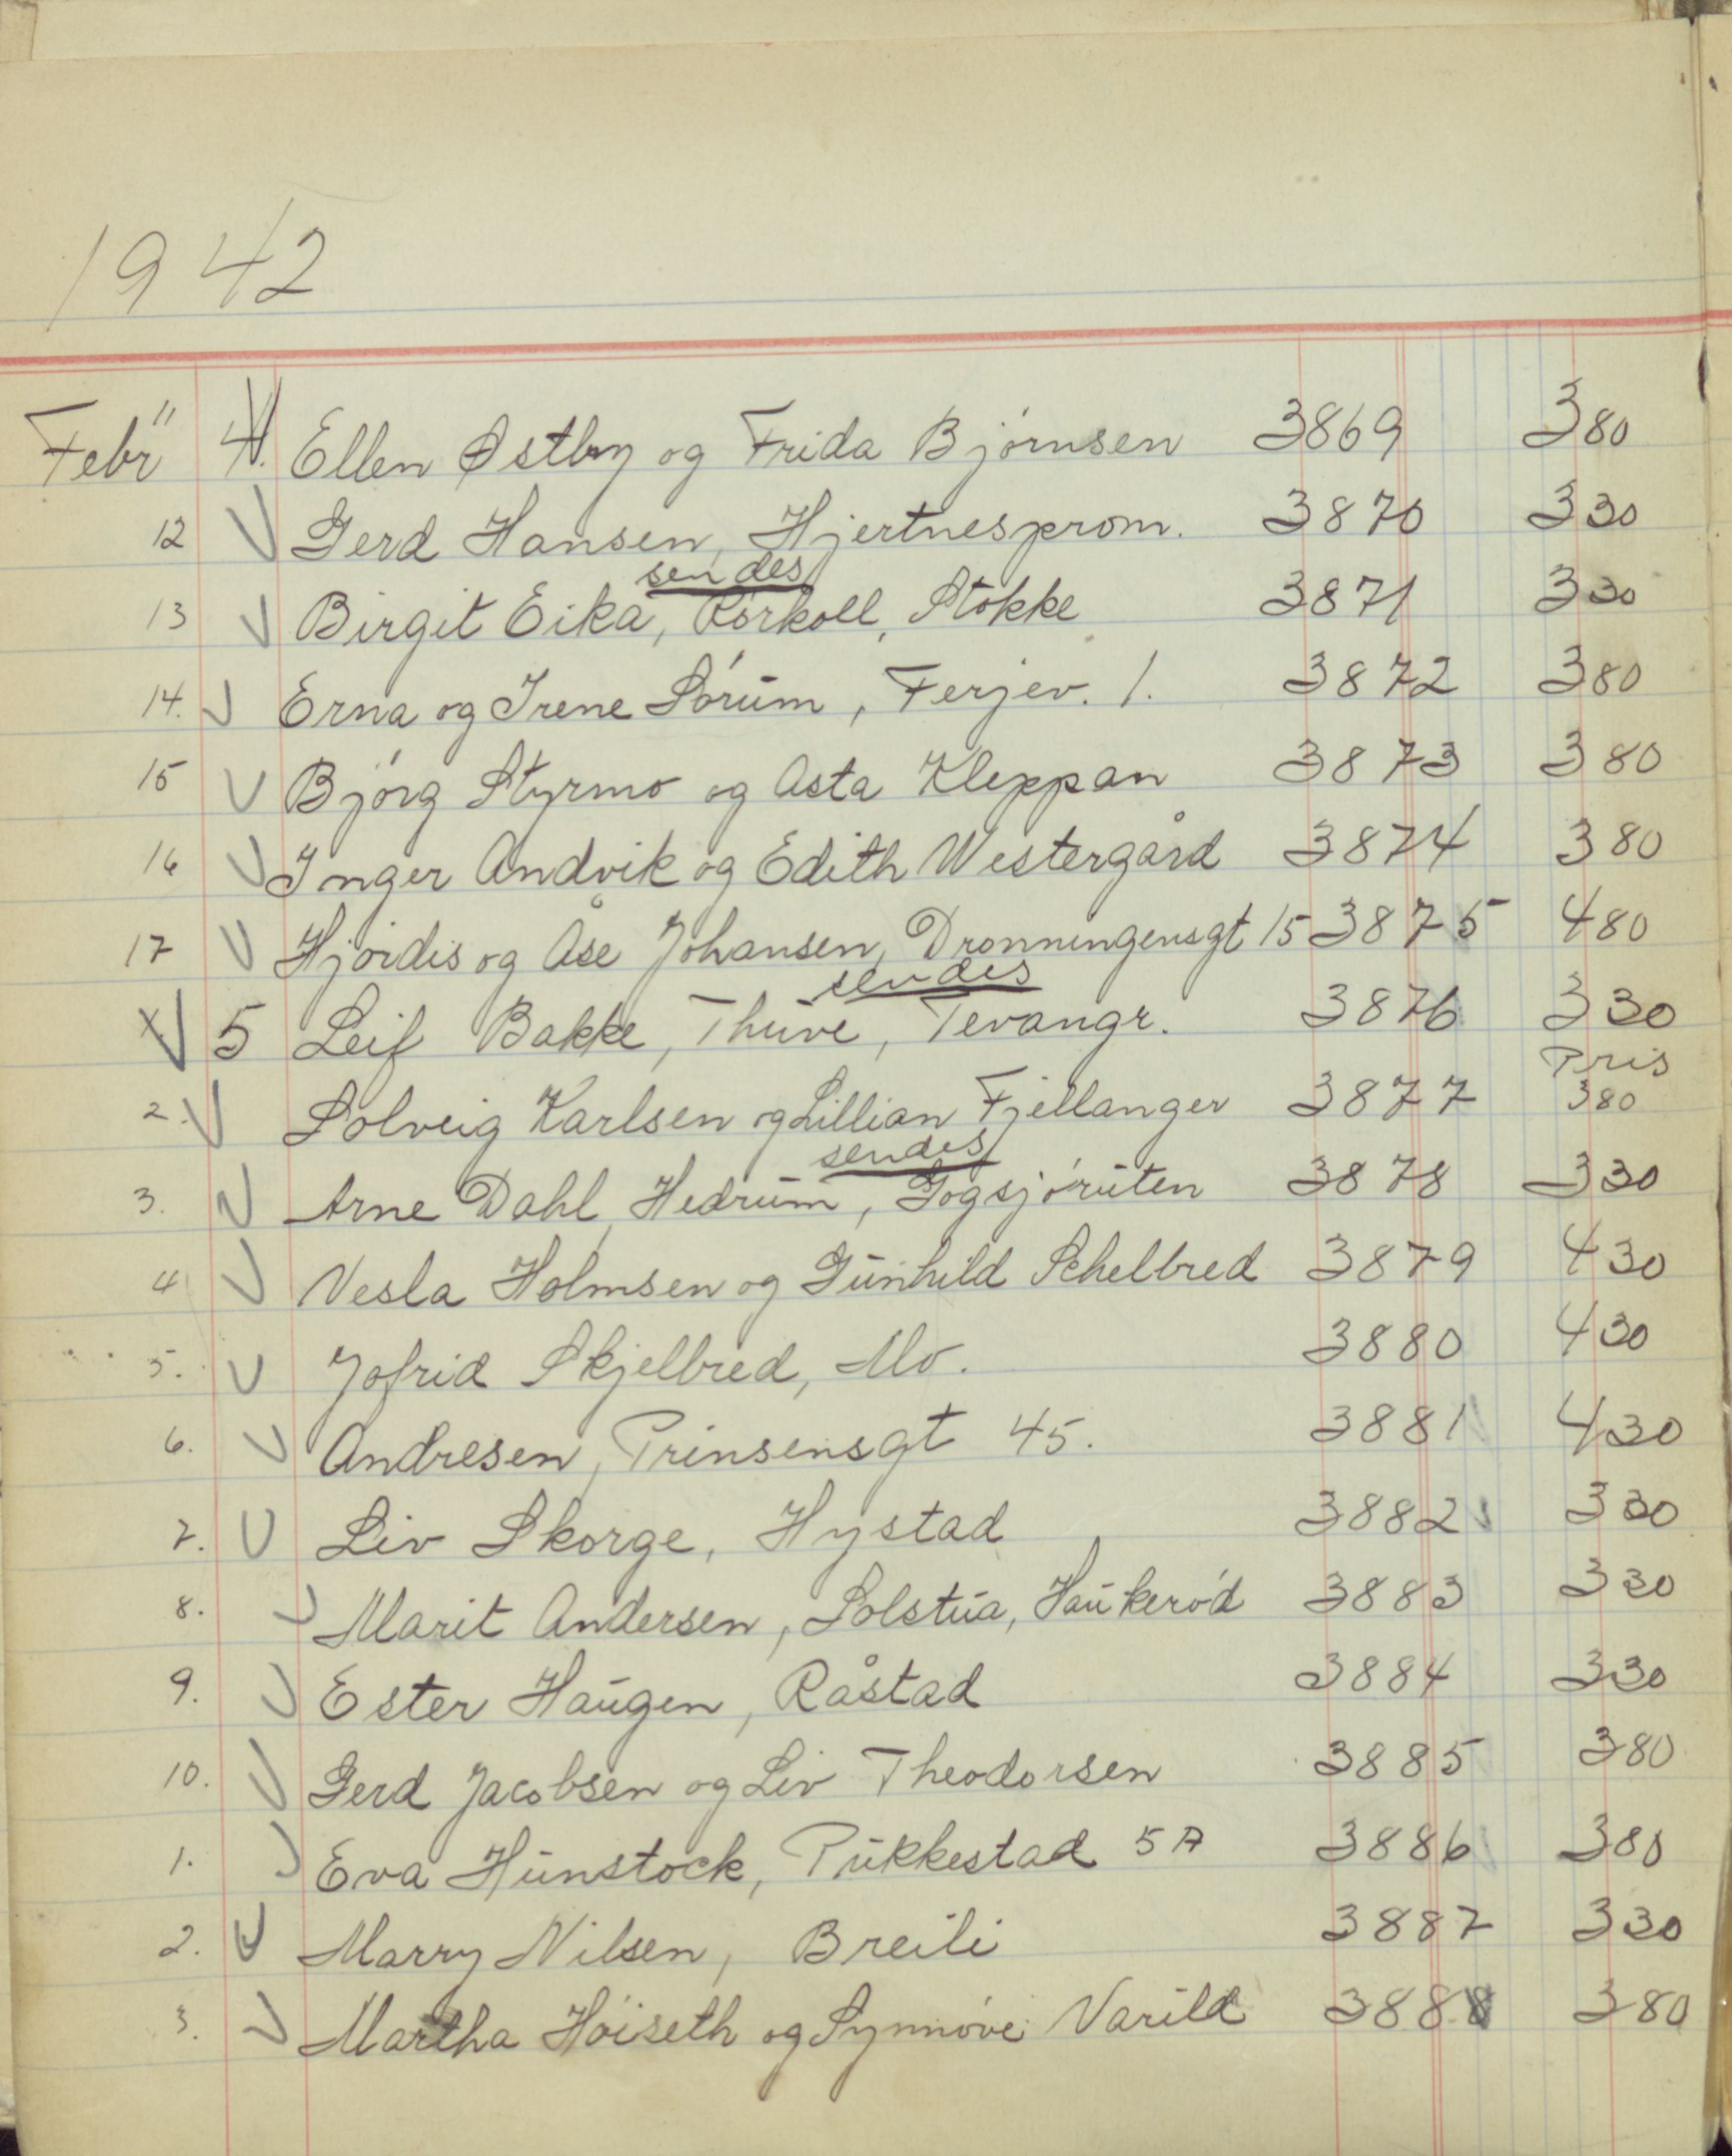 1942
Febr" 4. Ellen Østby og Frida Bjørnsen 3869 380
12 Gerd Hansen, Hjertnesprom. 3870 330
sendes
13 Birgit Eika, Rørkoll, Stokke 3871 330
14. Erna og Irene Sørum, Ferjev. 1. 3872 380
15 Bjørg Styrmo og Asta Kleppan 3873 380
16 Inger Andvik og Edith Westergård 3874 380
17 Hjørdis og Åse Johansen, Dronningensgt 15 3875 480
sendes
5 Leif Bakke, Thuve, Tevangr. 3876 330
Pris
2. Solveig Karlsen og Lillian Fjellanger 3877 380
sendes
3. Arne Dahl, Hedrum, Gogsjøruten 3878 330
4 Vesla Holmsen og Gunhild Schelbred 3879 430
5. Jofrid Skjelbred, Mo. 3880 430
6. Andresen, Prinsensgt 45. 3881 430
7. Liv Skorge, Hystad 3882 330
8. Marit Andersen, Solstua, Haukerød 3883 330
9. Ester Haugen, Råstad 3884 330
10. Gerd Jacobsen og Liv Theodorsen 3885 380
1. Eva Hunstock, Pukkestad 5A 3886 380
2. Marry Nilsen, Breili 3887 330
3. Martha Høiseth og Synnøve Varild 3888 380